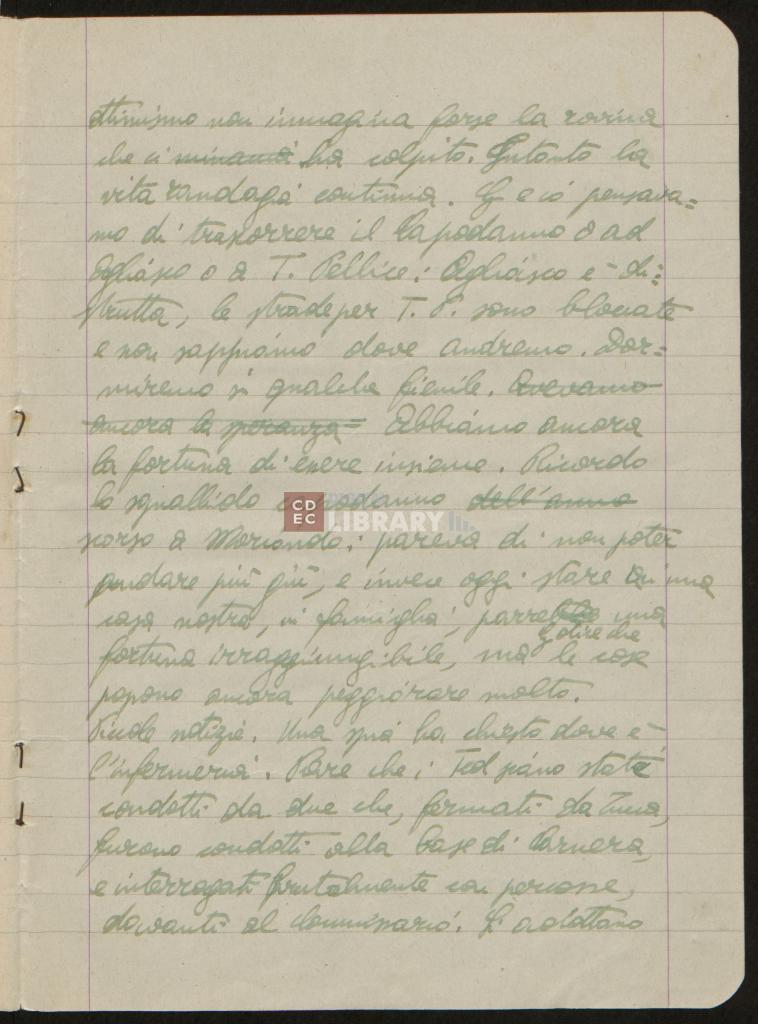 ottimismo non immagina forse la rovina
che ci minaccia ha colpito. Intanto la
vita randagia continua. G e io pensava=
mo di trascorrere il Capodanno o ad
Agliasco o a T. Pellice: Agliasco è di=
strutta, le strade per T. P. sono bloccate
e non sappiamo dove andremo. Dor=
miremo in qualche fienile. Avevamo
ancora la speranza= Abbiamo ancora
la fortuna di essere insieme. Ricordo
lo squallido capodanno dell'anno
scorso a Moriondo: pareva di non poter
andare più giù, e invece oggi stare in una
casa nostra, in famiglia, parrebbe una
E dire che
fortuna irraggiungibile, ma le cose
possono ancora peggiorare molto.
Piccole notizie. Una spia ha chiesto dove è
l'infermeria. Pare che i Ted siano stati
condotti da due che, fermati da
furono condotti alla base di Carnera,
e interrogati brutalmente con percosse,
davanti al Commissario. Si adottano
CDEC
DIGITAL
LIBRARY